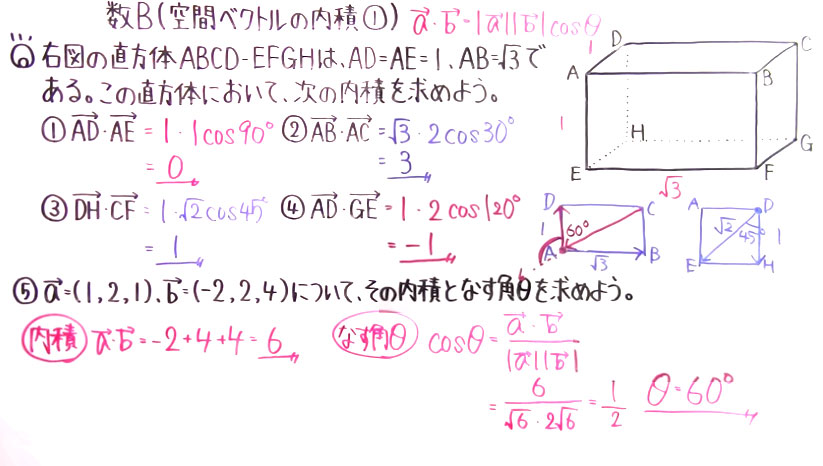 数B(空間ベクトルの内積①) a⃗・b⃗=|a⃗||b⃗|cosθ
右図の直方体ABCD-EFGHは、AD=AE=1、AB=√3で
ある。この直方体において、次の内積を求めよう。
①AD⃗・AE⃗=1・1cos90° ②AB⃗・AC⃗=√3・2cos30°
=0 =3
③DH⃗・CF⃗=1・√2cos45° ④AD⃗・GE⃗=1・2cos120°
=1 =-1
D C
1
A B
1
H G
E F
√3
D C A D
1 60° √2 45° 1
A √3 B E H
⑤a⃗=(1,2,1)、b⃗=(-2,2,4)について、その内積となす角θを求めよう。
内積 a⃗・b⃗=-2+4+4=6 なす角θ cosθ=a⃗・b⃗/|a⃗||b⃗|
=6/√6・2√6=1/2 θ=60°